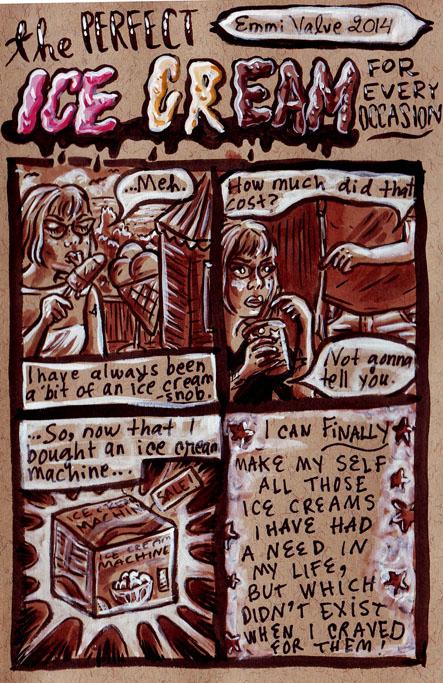 the PERFECT
Emmi Valve 2014
ICE CREAM
FOR
EVERY
OCCASION
...Meh.
I have always been
a bit of an ice cream
-snob.
How much did that
cost?
Not gonna
tell you.
...So, now that I
bought an ice cream
machine...
SALE!
ICE CREAM
MACHINE
ICE CREAM
MACHINE
I CAN FINALLY
MAKE MY SELF
ALL THOSE
ICE CREAMS
I HAVE HAD
A NEED IN
MY LIFE,
BUT WHICH
DIDN'T EXIST
WHEN I CRAVED
FOR THEM!